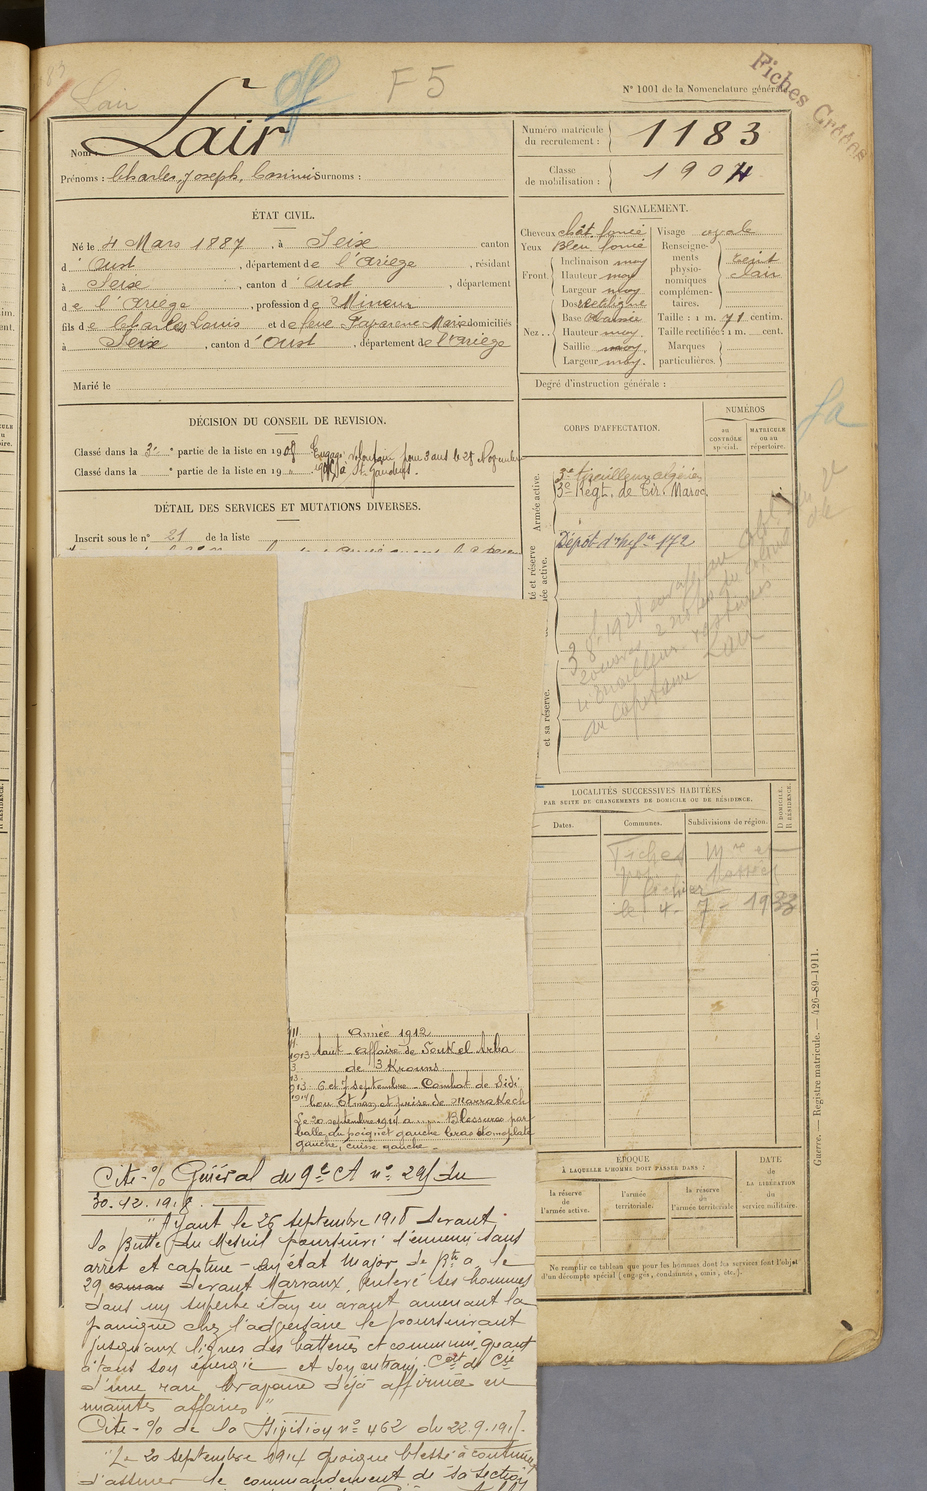 Lair
F5
N° 1001 de la Nomenclature générale
Fiches
Nom : Lair
Prénoms : Charles, Joseph, Casimir Surnoms :
Numéro matricule du recrutement : 1183
Classe de mobilisation : 1904
ÉTAT CIVIL.
Né le 4 Mars 1887, à Seix canton
d'Oust, département de l'Ariège, résidant
à Seix, canton d'Oust, département
de l'Ariège, profession de Mineur
fils de Charles Louis et de feue Marie domiciliés
à Seix, canton d'Oust, département de l'Ariège
Marié le
SIGNALEMENT.
Cheveux chât. foncé
Yeux Bleu foncé
Front. Inclinaison moy
Hauteur moy
Largeur moy
Nez.. Dos rectiligne
Base
Hauteur moy.
Saillie moy.
Largeur moy.
Visage ovale
Renseignements physionomiques complémentaires. teint clair
Taille : 1 m. 71 centim.
Taille rectifiée : 1 m. cent.
Marques particulières.
Degré d'instruction générale :
DÉCISION DU CONSEIL DE REVISION.
Classé dans la 3e partie de la liste en 1908
Classé dans la ° partie de la liste en 19
Engagé volontaire pour 3 ans le 28 Novembre
à St Gaudens.
DÉTAIL DES SERVICES ET MUTATIONS DIVERSES.
Inscrit sous le n° 21 de la liste
CORPS D'AFFECTATION.
NUMÉROS
au CONTRÔLE spécial.
MATRICULE ou au répertoire.
Armée active.
3e tirailleurs algériens
3e Regt. de Tir. Maroc.
Dépôt d'Infie 172
et sa réserve.
du capitaine Lair
LOCALITÉS SUCCESSIVES HABITÉES
PAR SUITE DE CHANGEMENTS DE DOMICILE OU DE RÉSIDENCE.
Dates.
Communes.
Subdivisions de région.
D DOMICILE. R RÉSIDENCE.
Fiches Mle et
le 4-7-1933
Année 1912
1913 Haut - affaire de Souk el Arba
de 3 Krouns
6 et 7 septembre - Combat de Sidi
bou Otman et prise de Marrakech
Le 20 septembre 1914 à Blessures par
balle du poignet gauche bras omoplate
gauche, cuisse gauche
Cité % Général du 9e CA n° 295 du
30.12.1918.
"Ayant le 26 septembre 1918 devant
la Butte du Mesnil poursuivi l'ennemi sans
arrêt et capturé un état Major de Bn a, le
29 devant Marvaux, enlevé ses hommes
dans un superbe élan en avant amenant la
panique chez l'adversaire le poursuivant
jusqu'aux lignes des batteries et communiquant
à tous son énergie et son entrain. Ct de Cie
d'une rare bravoure déjà affirmée en
maintes affaires"
Cité % de la Division n° 462 du 22.9.1917.
"Le 20 septembre 1914 quoique blessé a continué
d'assurer le commandement de sa section
ÉPOQUE
À LAQUELLE L'HOMME DOIT PASSER DANS :
la réserve de l'armée active.
l'armée territoriale.
la réserve de l'armée territoriale
DATE de LA LIBÉRATION du service militaire.
Ne remplir ce tableau que pour les hommes dont les services font l'objet
d'un décompte spécial [engagés, condamnés, omis, etc.].
Guerre. — Registre matricule. — 426-89-1911.